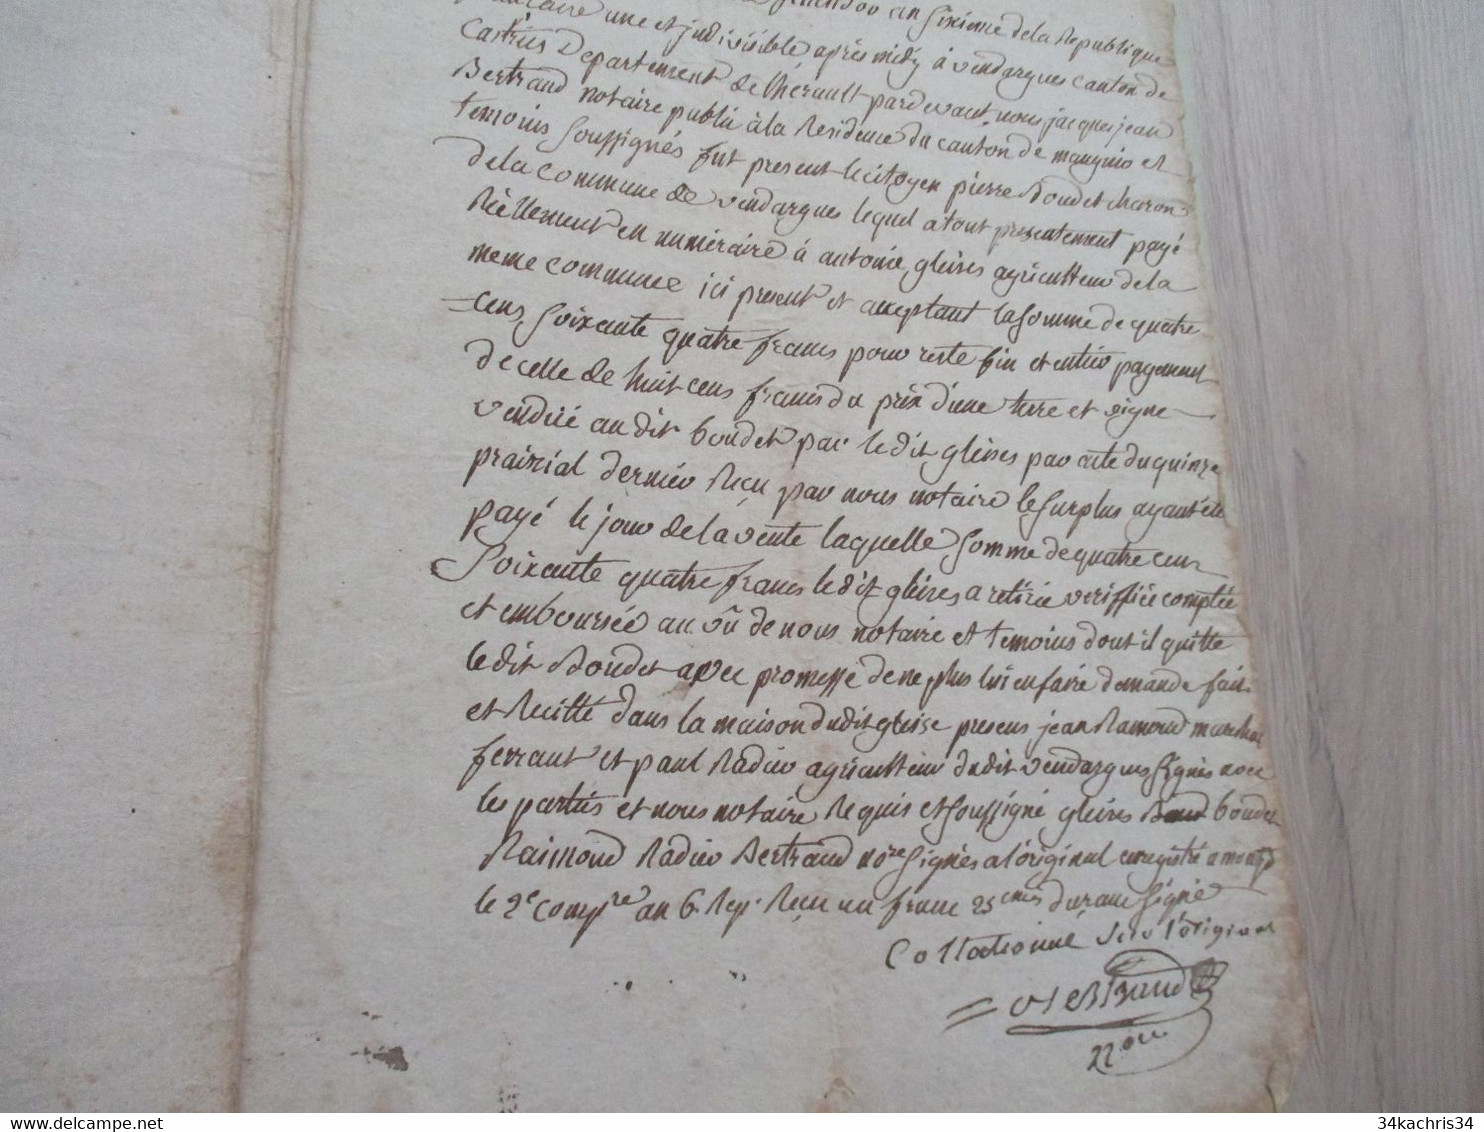 an sixieme de la Republique
une et jndivisible, après midy à vendargues canton de
Castries Departement de lhérault pardevant nous jacques jean
Bertrand notaire public à la Residence du canton de mauguio et
temoins soussignés fut present le citoyen pierre Boudet charon
de la commune de vendargues lequel a tout presentement payé
Réellement en numéraire à antoine gleises agriculteur de la
meme commune ici present et acceptant la somme de quatre
cens soixante quatre francs pour reste fin et entier payement
de celle de huit cens francs du prix d'une terre et vigne
vendue au dit boudet par le dit gleises par acte du quinze
prairial dernier Recu par nous notaire le surplus ayant été
payé le jour de la vente laquelle somme de quatre cens
soixante quatre francs le dit gleises a retirée veriffiée comptée
et emboursée au vû de nous notaire et temoins dont il quitte
le dit Boudet avec promesse de ne plus lui en faire demande fait
et Recitté dans la maison dudit gleise presens jean Ramond marechal
ferrant et paul Radier agriculteur dudit vendargues signés avec
les parties et nous notaire Requis et soussigné gleises boudet
Raimond Radier Bertrand no.re signés a l'original enregistré a
le 2e comp.re an 6 Rep. Recu un franc 25 cmes Durane signé
Collationné sur l'original
Bertrand
n.ore
34kachris34